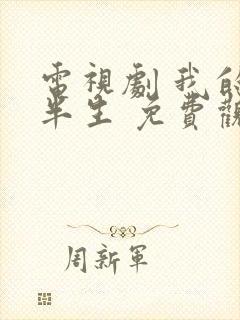 電視劇我的
半生 免費觀
周新軍